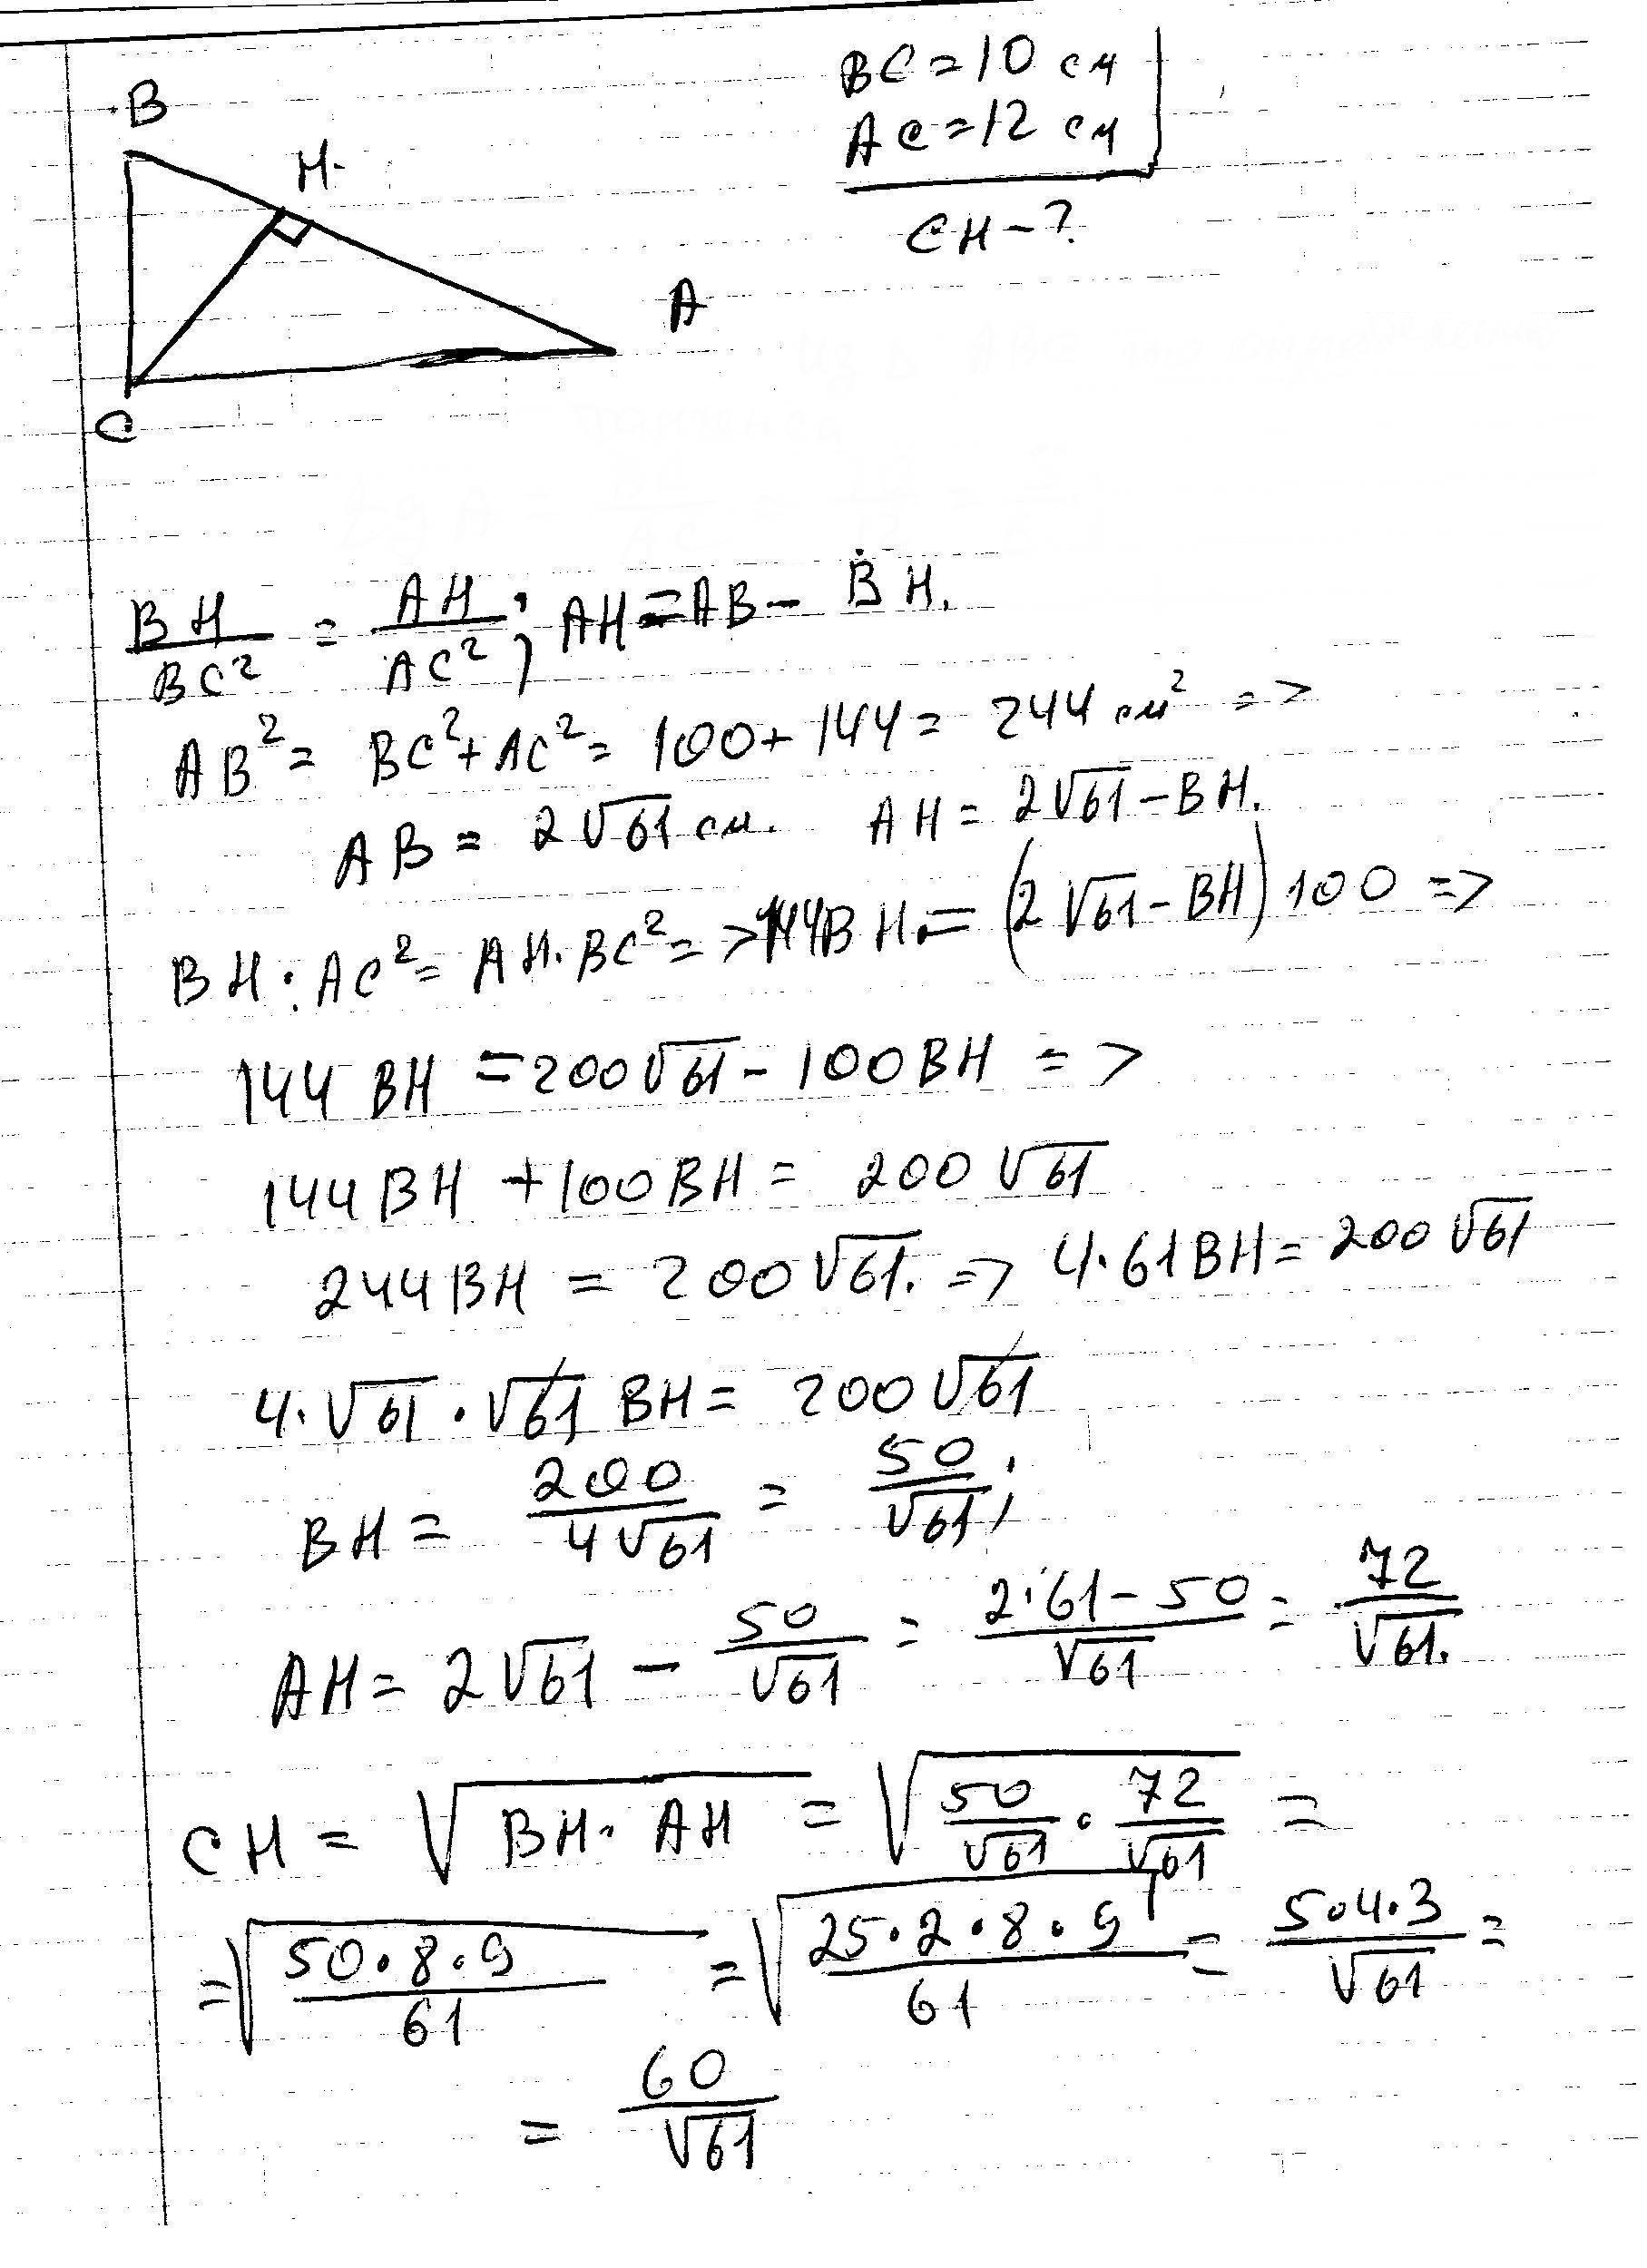 B
H
A
C
BC = 10 см
AC = 12 см
CH - ?
BH/BC² = AH/AC²; AH = AB - BH.
AB² = BC² + AC² = 100 + 144 = 244 см² =>
AB = 2√61 см. AH = 2√61 - BH.
BH · AC² = AH · BC² => 144BH = (2√61 - BH)100 =>
144 BH = 200√61 - 100BH =>
144BH + 100BH = 200√61
244BH = 200√61. => 4·61BH = 200√61
4·√61·√61 BH = 200√61
BH = 200/4√61 = 50/√61;
AH = 2√61 - 50/√61 = 2·61-50/√61 = 72/√61.
CH = √BH·AH = √50/√61 · 72/√61 =
= √50·8·9/61 = √25·2·8·9/61 = 5·4·3/√61 =
= 60/√61